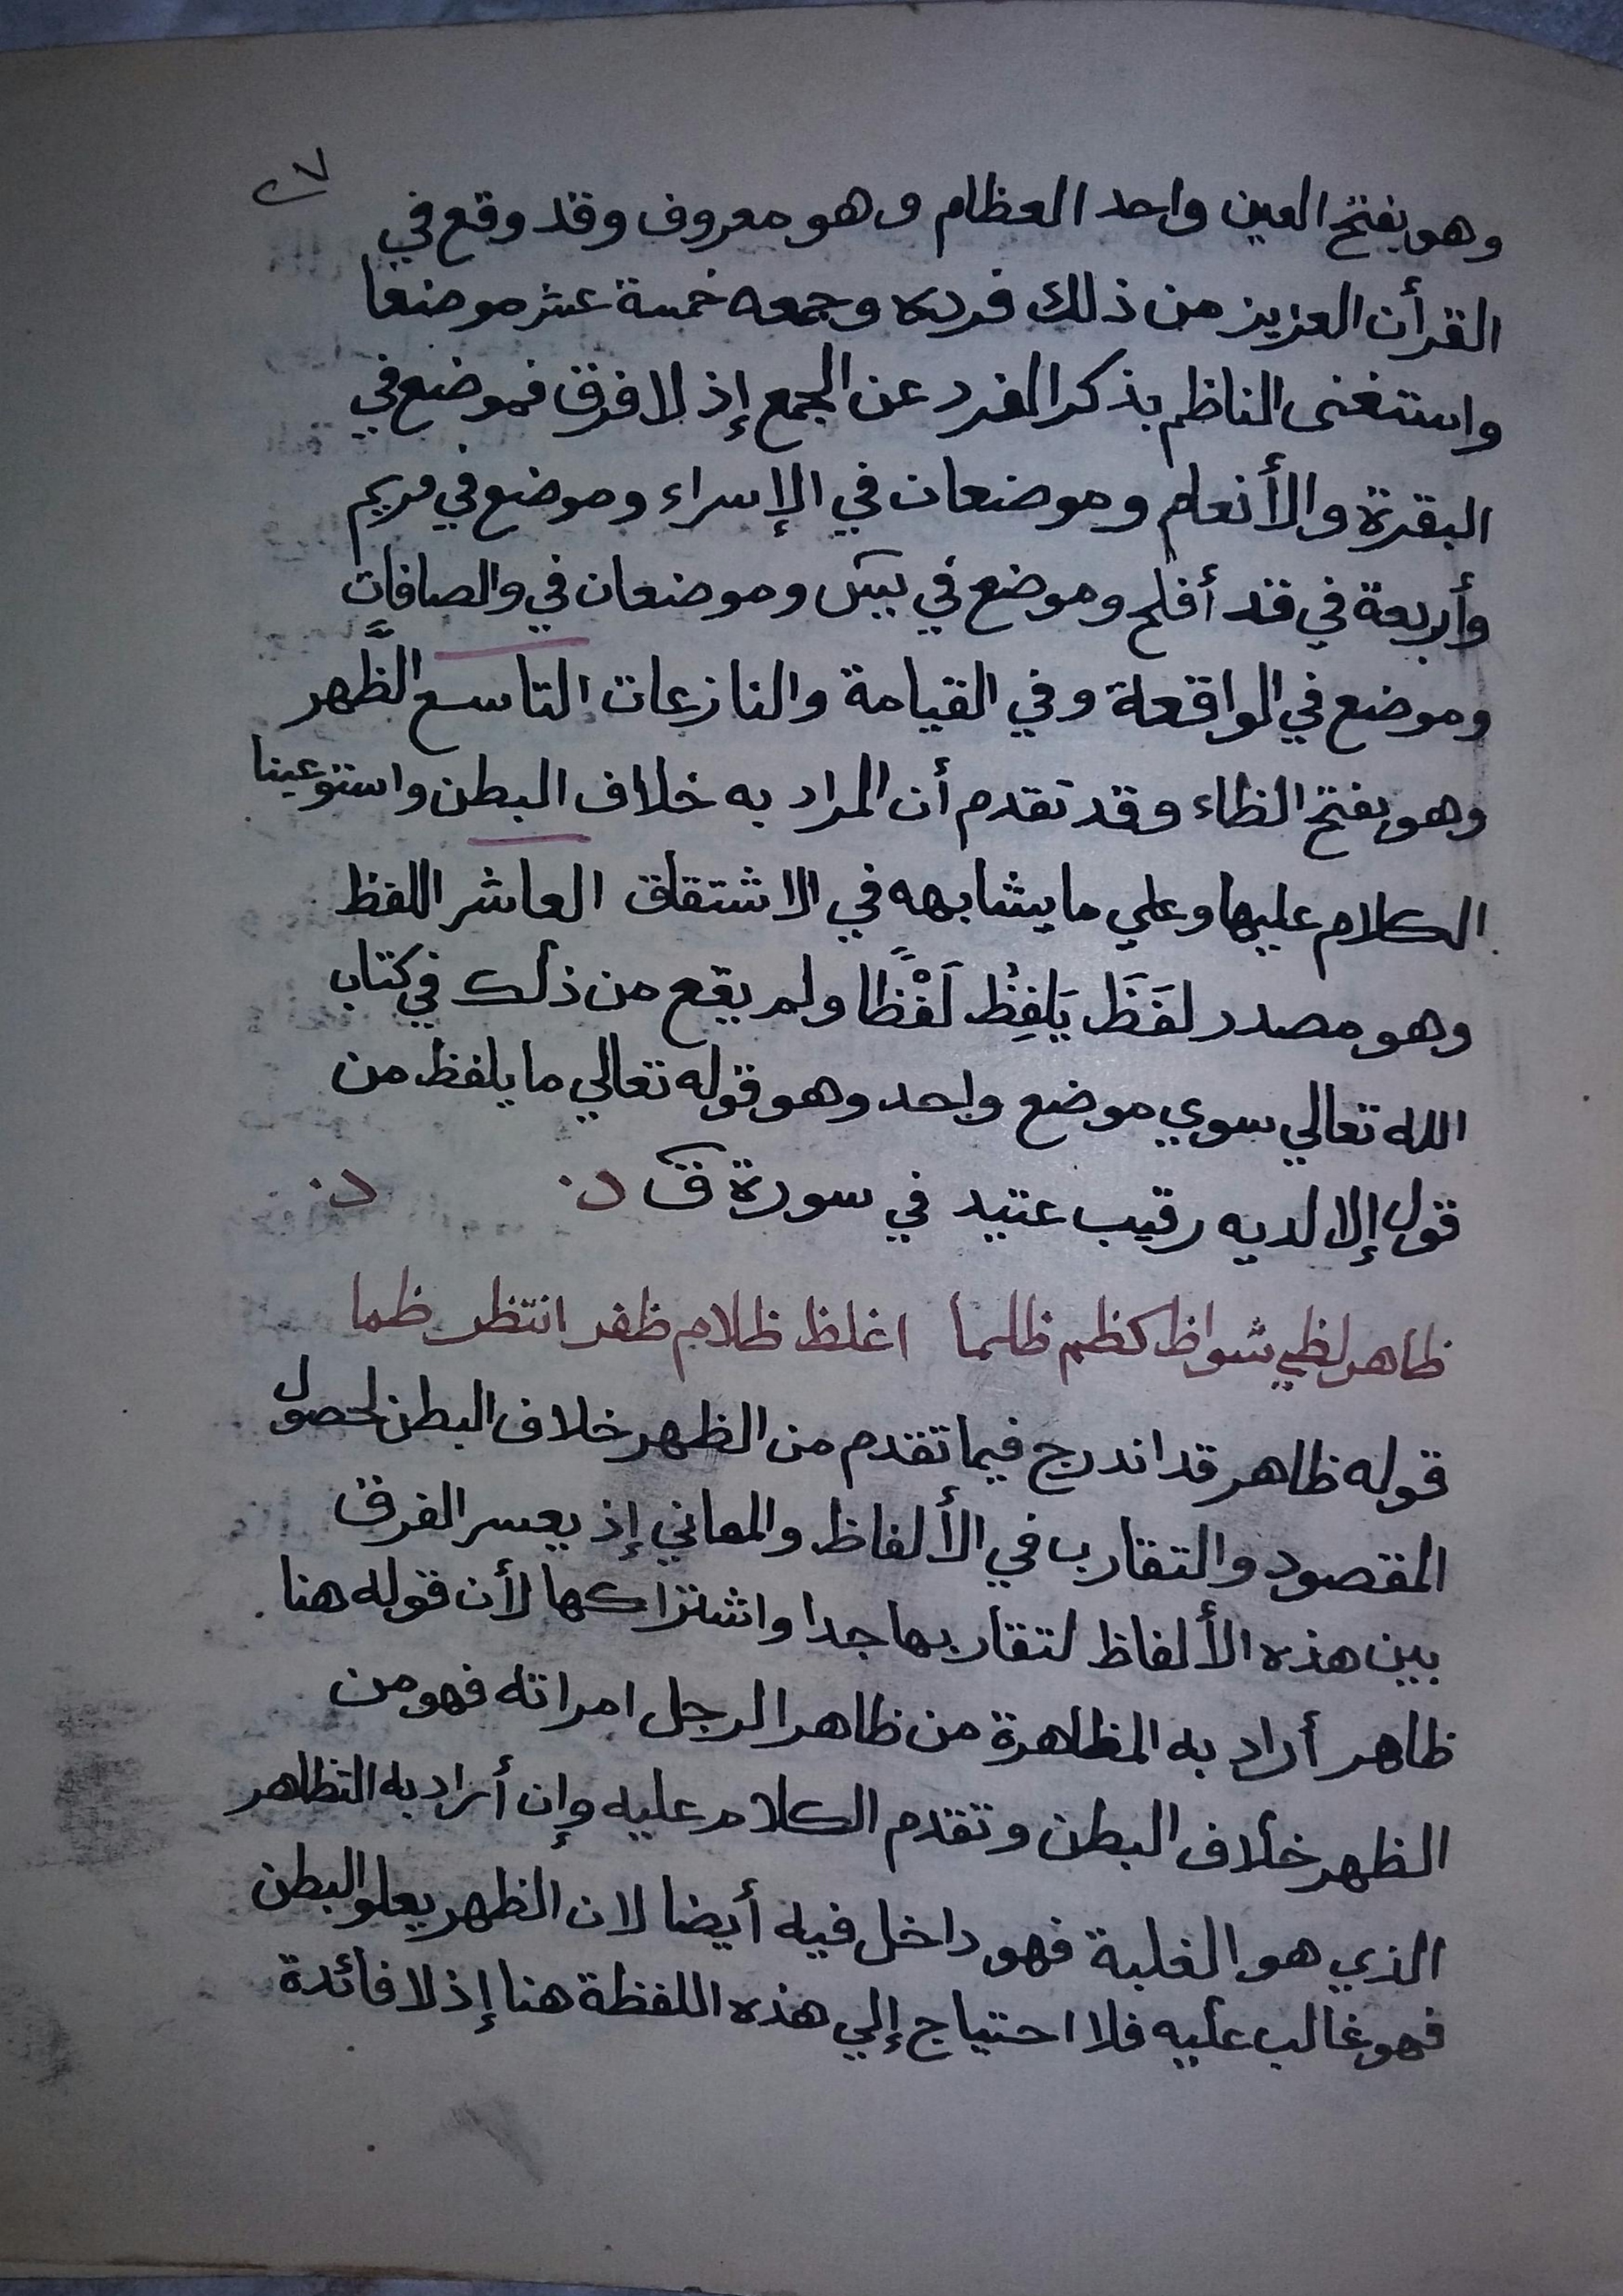 ٢٧
وهو بفتح العين واحد العظام وهو معروف وقد وقع في
القرأن العزيز من ذلك فرده وجمعه خمسة عشر موضعا
واستغنى الناظم بذكر المفرد عن الجمع إذ لا فرق فموضع في
البقرة والأنعام وموضعان في الإسراء وموضع في مريم
وأربعة في قد أفلح وموضع في يس وموضعان في والصافات
وموضع في الواقعة وفي القيامة والنازعات التاسع الظَّهر
وهو بفتح الظاء وقد تقدم أن المراد به خلاف البطن واستوعبنا
الكلام عليها وعلي ما يشابهه في الاشتقاق العاشر اللفظ
وهو مصدر لفَظَ يَلفِظُ لَفْظًا ولم يقع من ذلك في كتاب
الله تعالي سوي موضع واحد وهو قوله تعالي ما يلفظ من
قول إلا لديه رقيب عتيد في سورة ق
ظاهر لظي شواظ كظم ظلما اغلظ ظلام ظفر انتظر ظما
قوله ظاهر قد اندرج فيما تقدم من الظهر خلاف البطن لحصول
المقصود والتقارب في الألفاظ والمعاني إذ يعسر الفرق
بين هذه الألفاظ لتقاربها جدا واشتراكها لأن قوله هنا
ظاهر أراد به المظاهرة من ظاهر الرجل امراته فهو من
الظهر خلاف البطن وتقدم الكلام عليه وإن أراد به التظاهر
الذي هو الغلبة فهو داخل فيه أيضا لان الظهر يعلو البطن
فهو غالب عليه فلا احتياج إلي هذه اللفظة هنا إذ لا فائدة